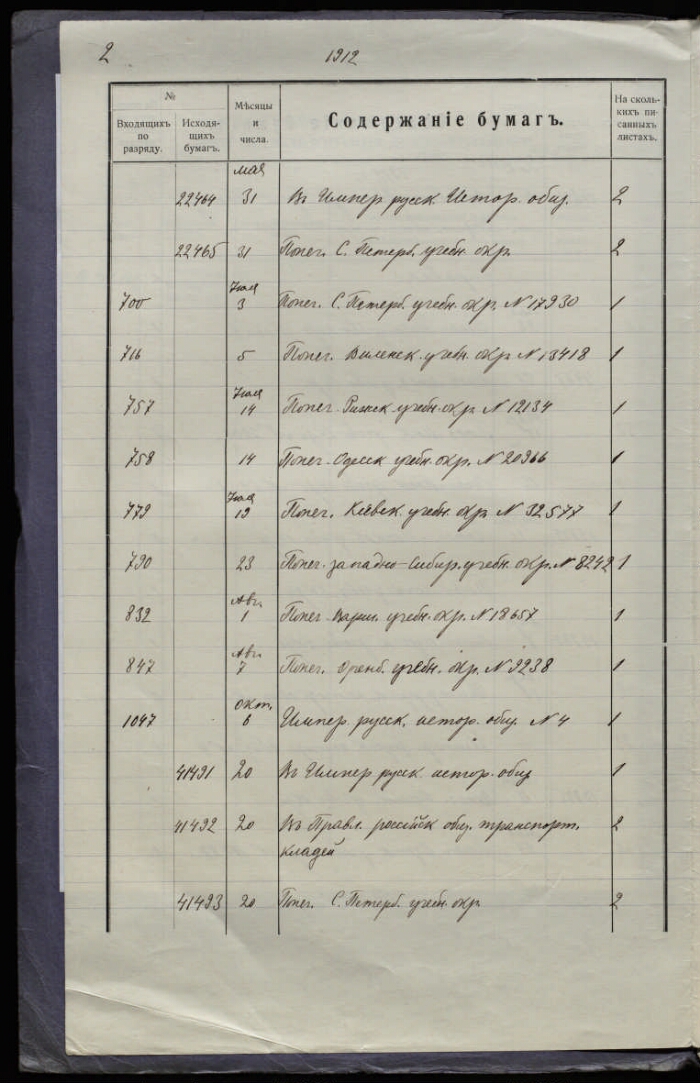 2
1912
№
Входящихъ по разряду.
Исходящихъ бумагъ.
Мѣсяцы и числа.
Содержаніе бумагъ.
На сколькихъ писанныхъ листахъ.
мая
22464 31 Въ Импер русск. Истор. общ. 2
22465 31 Попеч. С. Петерб. учебн. окр. 2
Іюля
700 3 Попеч. С. Петерб. учебн. окр. N 17930 1
716 5 Попеч. Виленск. учебн. окр N 13418 1
Іюля
757 14 Попеч. Рижск. учебн. окр. N 12134 1
758 14 Попеч. Одесск учебн. окр. N 20966 1
Іюля
779 19 Попеч. Кіевск. учебн. окр. N 32577 1
790 23 Попеч. западно-Сибир. учебн. окр. N 8242 1
Авг.
832 1 Попеч. Варш. учебн. окр. N 18657 1
Авг.
847 7 Попеч. Оренб. учебн. окр. N 9238 1
Окт.
1047 6 Импер. русск. истор. общ N 4 1
41491 20 Въ Импер русск истор. общ 1
41492 20 Въ Правл. россійск общ. транспорт. 2
кладей
41493 20 Попеч. С. Петерб. учебн. окр. 2